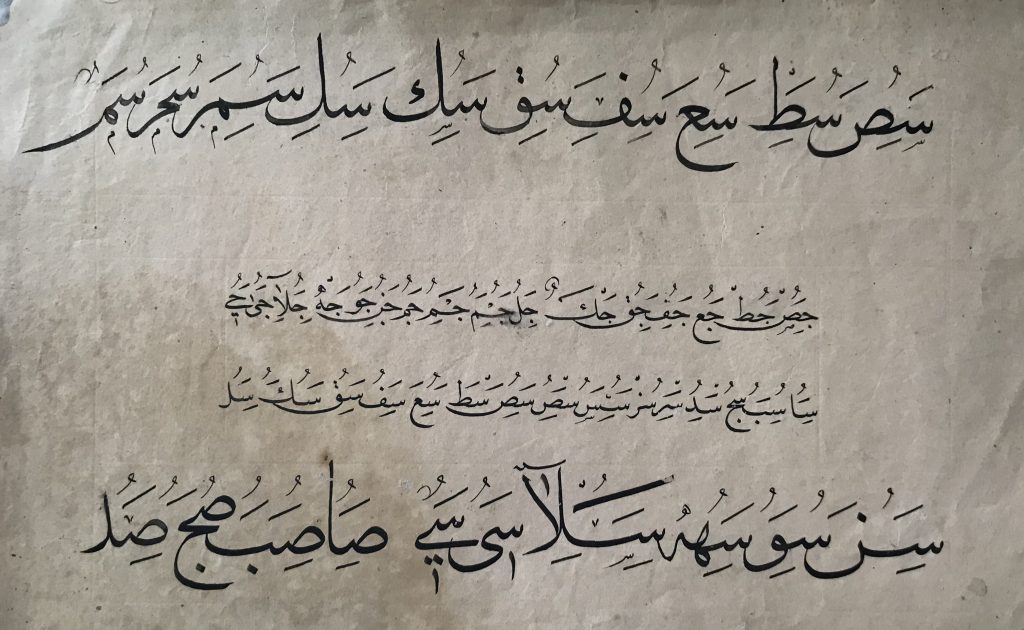 سص سط سع سف سق سك سل سم سم سم
جص جط جع جف جق جك جل جم جم جم جن جو جه جلا جى جى
سا سب سج سد سر سس سص سص سط سع سف سق سك سل
سن سو سه سلا سى سى صا صب صج صد